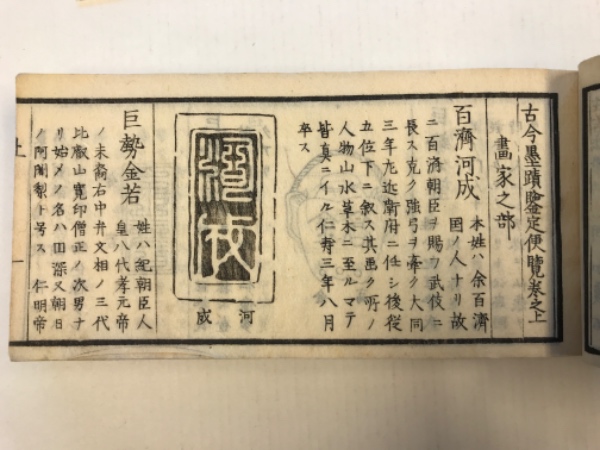 古今墨蹟鑒定便覧巻之上
畫家之部
百濟河成
本姓ハ余百濟
國ノ人ナリ故
ニ百濟朝臣ヲ賜フ武伎ニ
長ス克ク強弓ヲ牽ク大同
三年左近衛府ニ任シ後従
五位下ニ叙ス其画ク所ノ
人物山水草木ニ至ルマテ
皆真ニイル仁壽三年八月
卒ス
河成
河成
巨勢金若
姓ハ紀朝臣人
皇八代孝元帝
ノ末裔右中弁文相ノ三代
比叡山寛印僧正ノ次男ナ
リ始メノ名ハ田深又朝日
ノ阿闍梨ト号ス仁明帝
上
一